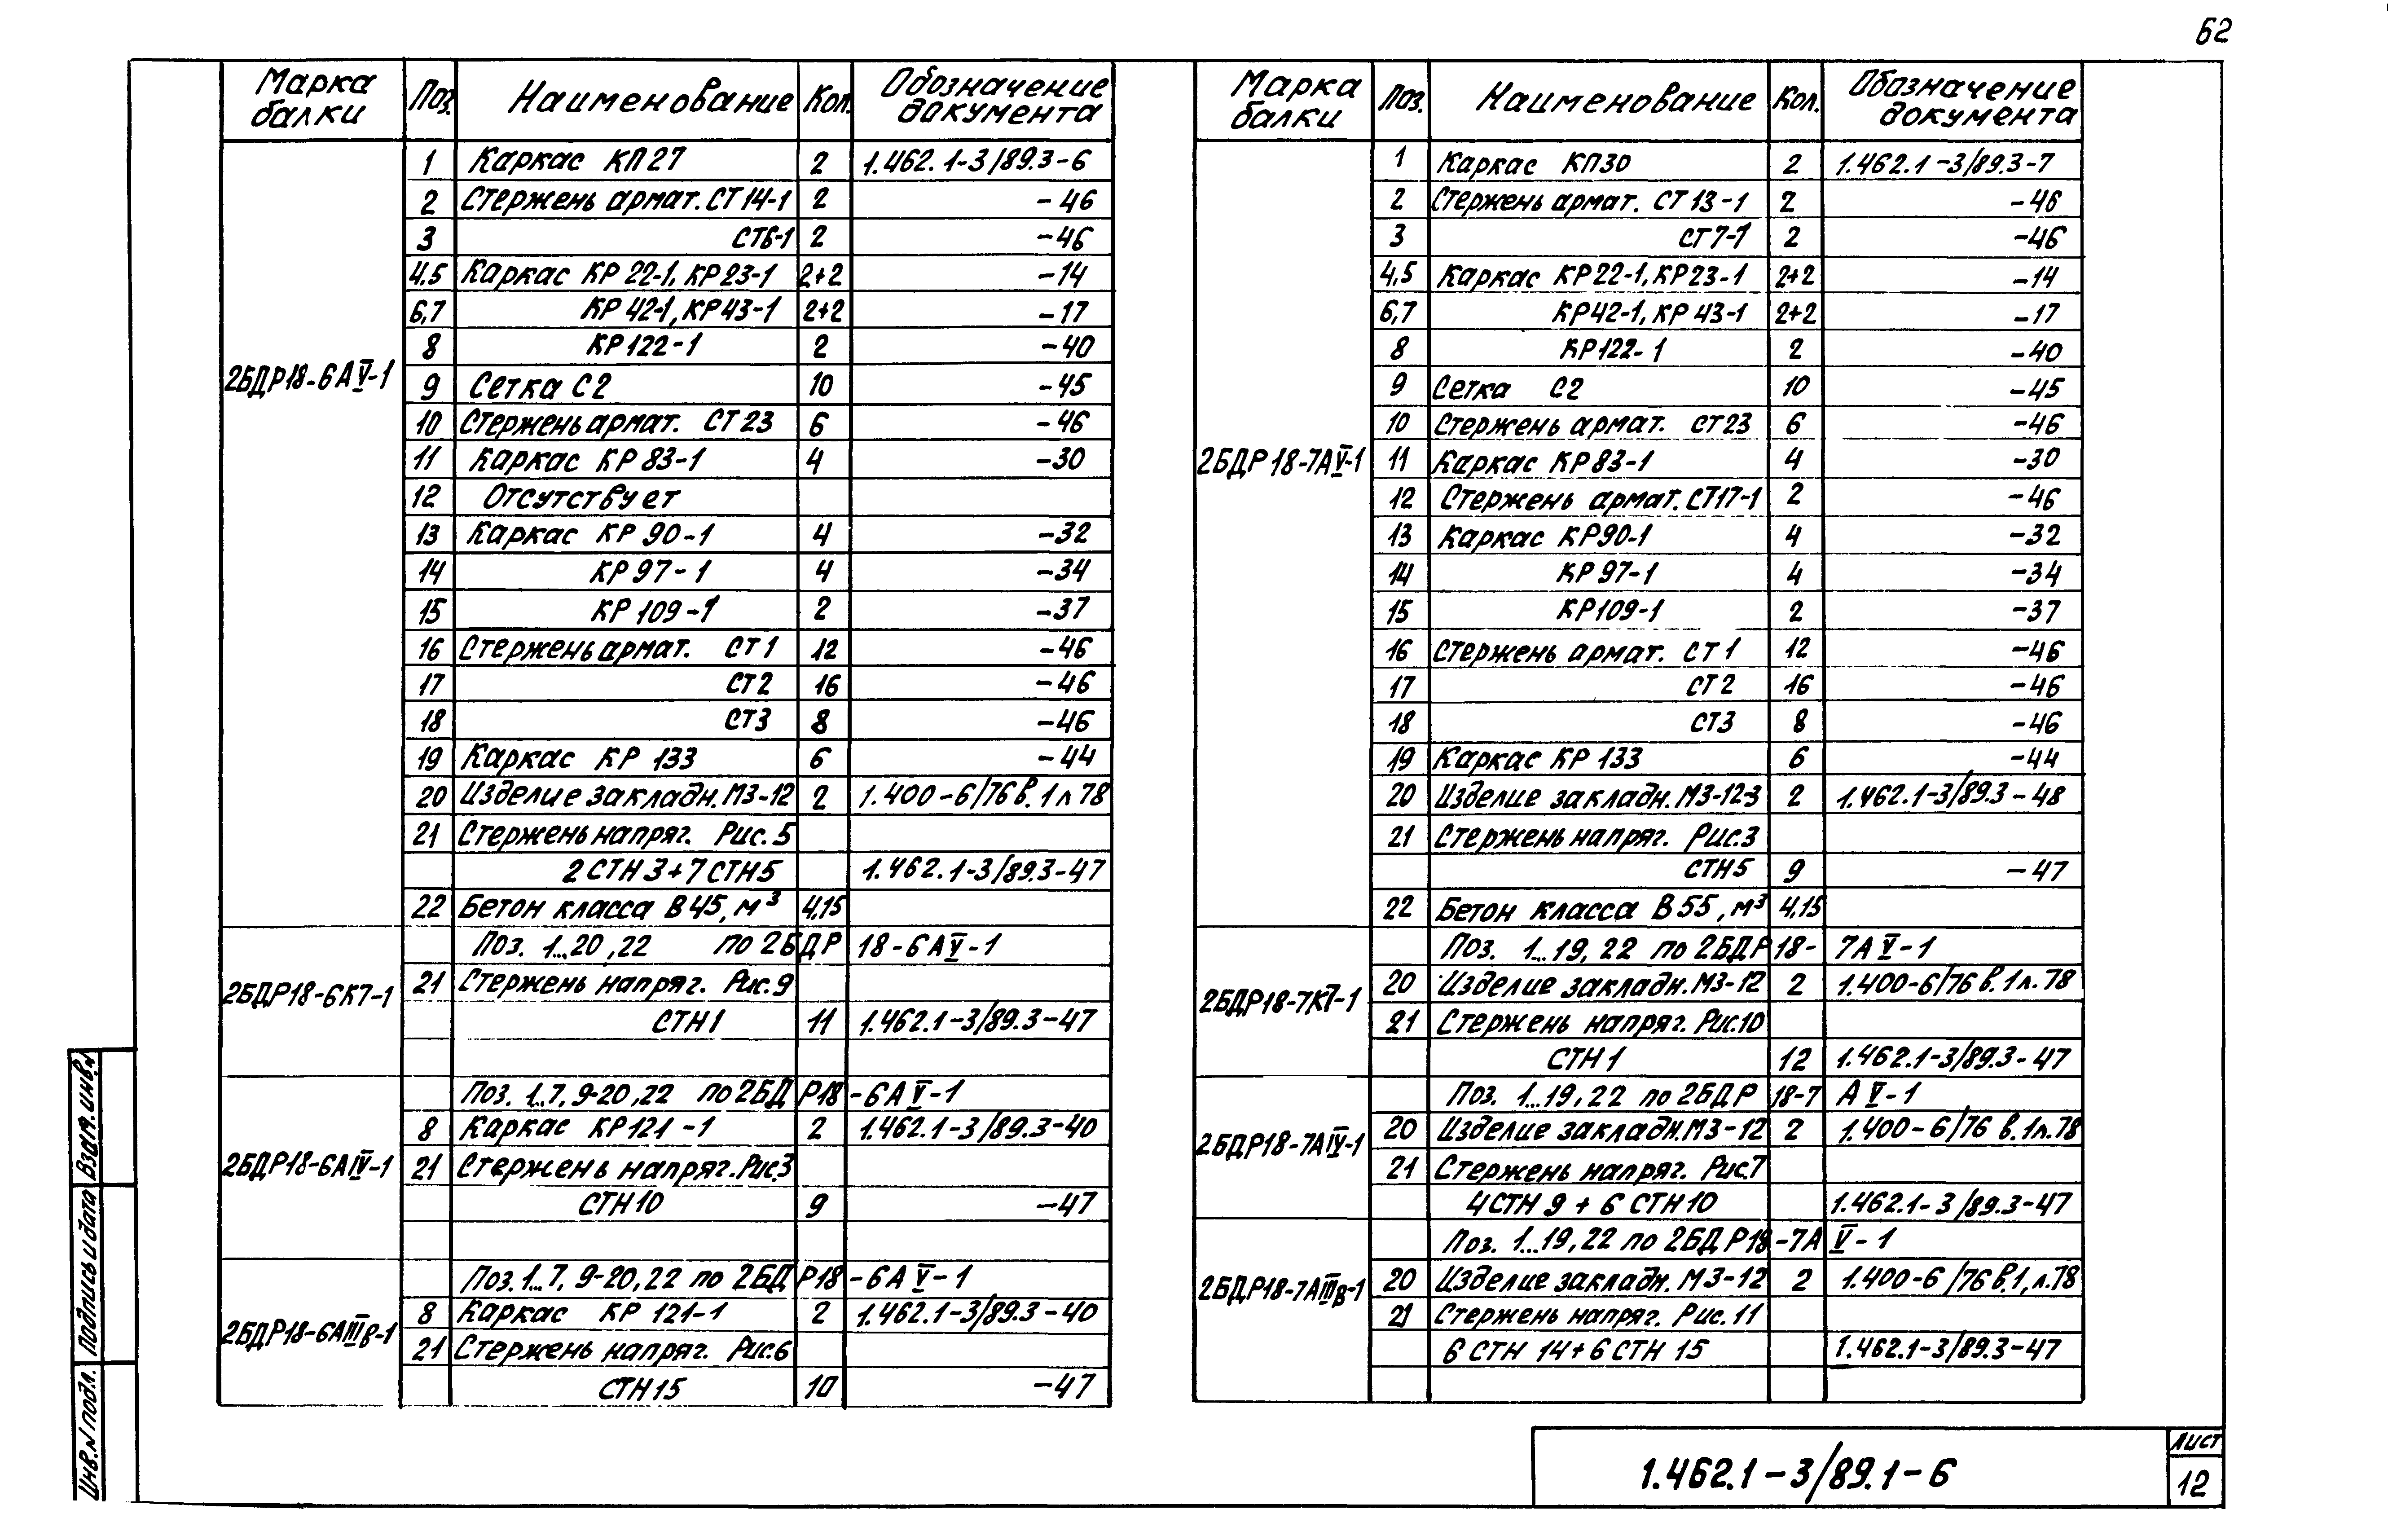 62
Марка балки Поз. Наименование Кол. Обозначение документа
2БДР18-6АV-1
1 Каркас КП27 2 1.462.1-3/89.3-6
2 Стержень армат. СТ14-1 2 -46
3 СТ6-1 2 -46
4,5 Каркас КР22-1, КР23-1 2+2 -14
6,7 КР42-1, КР43-1 2+2 -17
8 КР122-1 2 -40
9 Сетка С2 10 -45
10 Стержень армат. СТ23 6 -46
11 Каркас КР83-1 4 -30
12 Отсутствует
13 Каркас КР90-1 4 -32
14 КР97-1 4 -34
15 КР109-1 2 -37
16 Стержень армат. СТ1 12 -46
17 СТ2 16 -46
18 СТ3 8 -46
19 Каркас КР133 6 -44
20 Изделие закладн. М3-12 2 1.400-6/76 в.1 л 78
21 Стержень напряг. Рис. 5
2СТН3+7СТН5 1.462.1-3/89.3-47
22 Бетон класса В45, м³ 4,15
2БДР18-6К7-1
Поз. 1...20, 22 по 2БДР18-6АV-1
21 Стержень напряг. Рис. 9
СТН1 11 1.462.1-3/89.3-47
2БДР18-6АIV-1
Поз. 1...7, 9-20, 22 по 2БДР18-6АV-1
8 Каркас КР121-1 2 1.462.1-3/89.3-40
21 Стержень напряг. Рис.3
СТН10 9 -47
2БДР18-6АIIIв-1
Поз. 1...7, 9-20, 22 по 2БДР18-6АV-1
8 Каркас КР121-1 2 1.462.1-3/89.3-40
21 Стержень напряг. Рис.6
СТН15 10 -47
Марка балки Поз. Наименование Кол. Обозначение документа
2БДР18-7АV-1
1 Каркас КП30 2 1.462.1-3/89.3-7
2 Стержень армат. СТ13-1 2 -46
3 СТ7-1 2 -46
4,5 Каркас КР22-1, КР23-1 2+2 -14
6,7 КР42-1, КР43-1 2+2 -17
8 КР122-1 2 -40
9 Сетка С2 10 -45
10 Стержень армат. СТ23 6 -46
11 Каркас КР83-1 4 -30
12 Стержень армат. СТ17-1 2 -46
13 Каркас КР90-1 4 -32
14 КР97-1 4 -34
15 КР109-1 2 -37
16 Стержень армат. СТ1 12 -46
17 СТ2 16 -46
18 СТ3 8 -46
19 Каркас КР133 6 -44
20 Изделие закладн. М3-12-3 2 1.462.1-3/89.3-48
21 Стержень напряг. Рис.3
СТН5 9 -47
22 Бетон класса В55, м³ 4,15
2БДР18-7К7-1
Поз. 1...19, 22 по 2БДР18-7АV-1
20 Изделие закладн. М3-12 2 1.400-6/76 в.1 л.78
21 Стержень напряг. Рис.10
СТН1 12 1.462.1-3/89.3-47
2БДР18-7АIV-1
Поз. 1...19, 22 по 2БДР18-7АV-1
20 Изделие закладн. М3-12 2 1.400-6/76 в.1л.78
21 Стержень напряг. Рис.7
4СТН9+6СТН10 1.462.1-3/89.3-47
2БДР18-7АIIIв-1
Поз. 1...19, 22 по 2БДР18-7АV-1
20 Изделие закладн. М3-12 2 1.400-6/76 в.1, л.78
21 Стержень напряг. Рис. 11
6СТН14+6СТН15 1.462.1-3/89.3-47
Инв.N подл. Подпись и дата Взам.инв.N
1.462.1-3/89.1-6
Лист
12